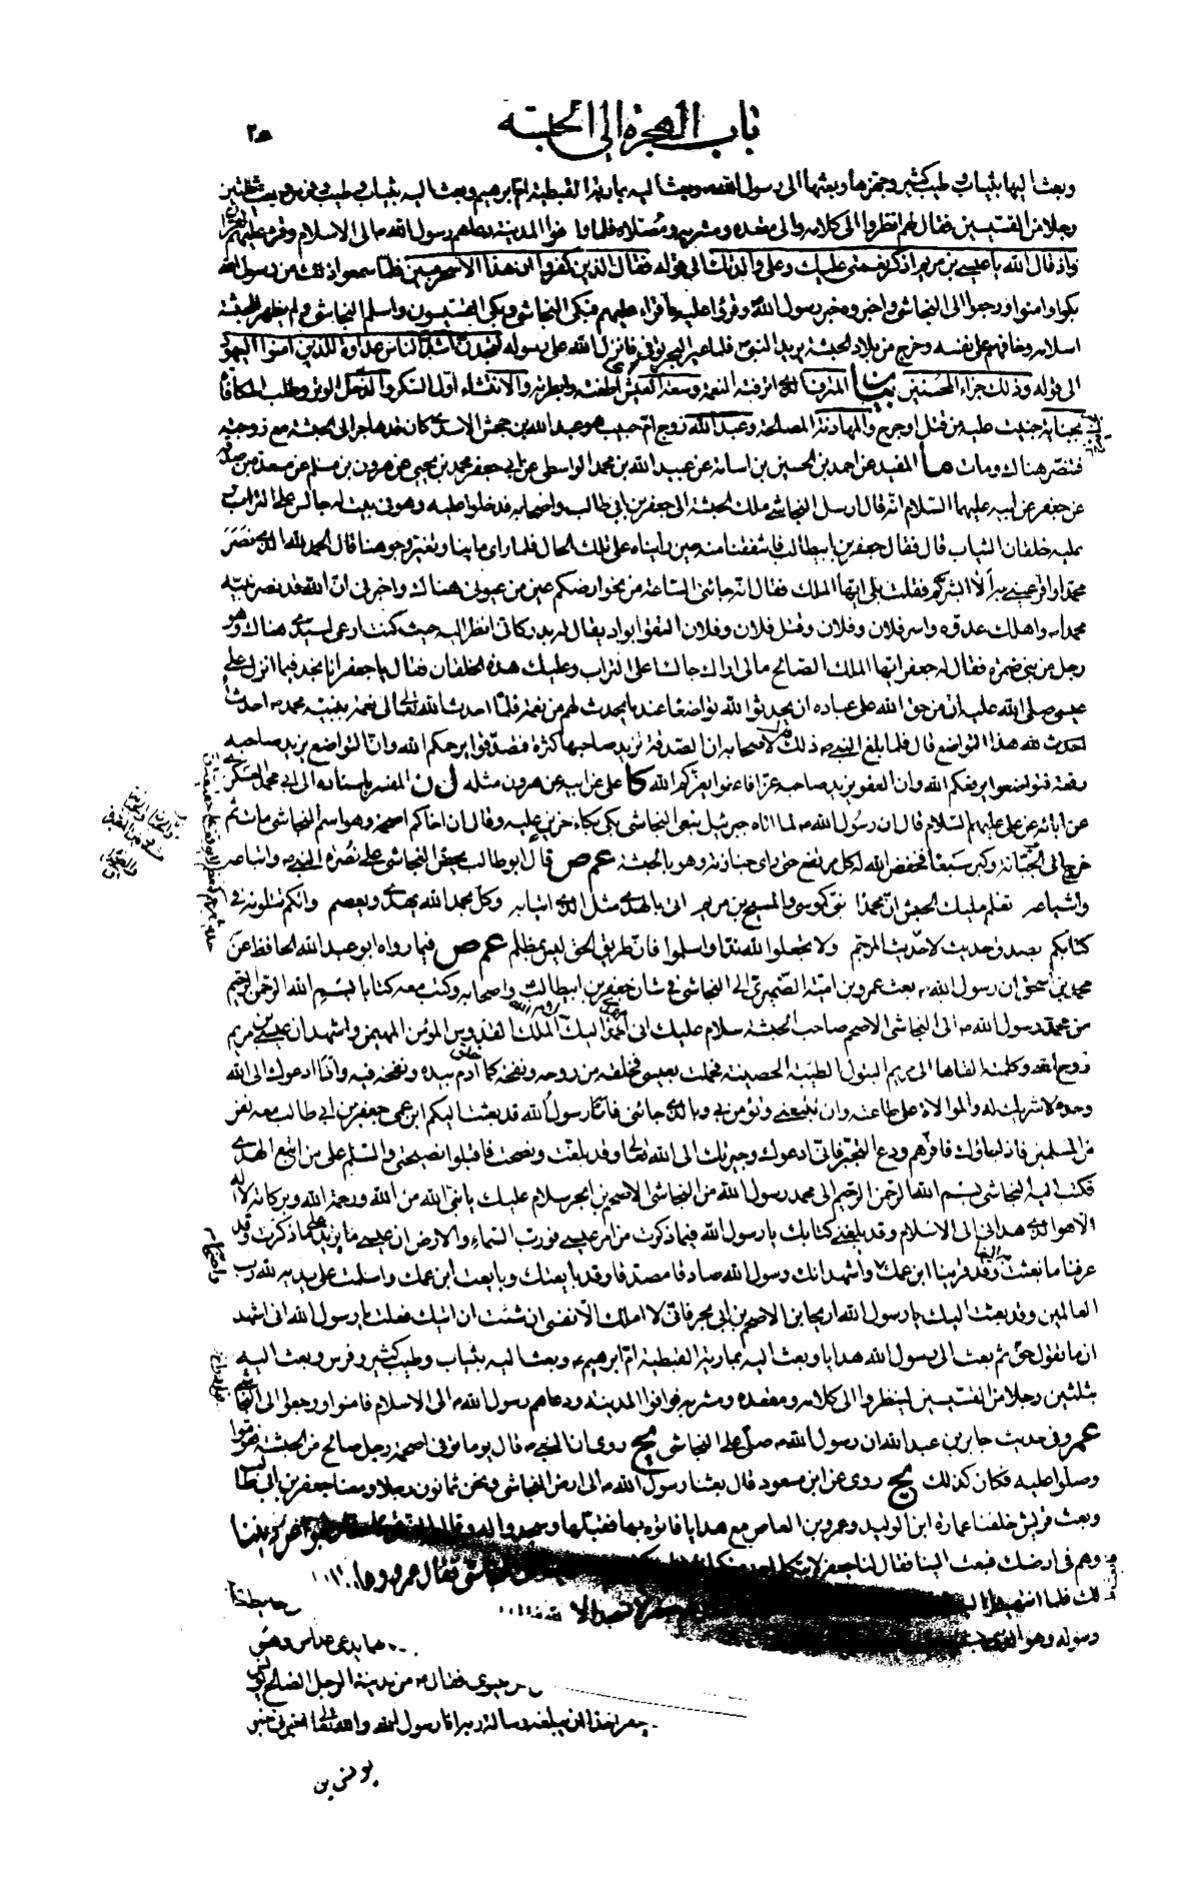 باب الهجرة الى الحبشة
وبعث اليها بثياب وطيب كثير وجهزها وبعثها الى رسول الله وبعث اليه بمارية القبطية ام ابرهيم وبعث اليه بثياب وطيب وفرس وبعث ثلثين
رجلا من القسيسين فقال لهم انظروا الى كلامه والى مقعده ومشربه ومصلاه فلما وافوا المدينة دعاهم رسول الله ص الى الاسلام وقرء عليهم القران
واذ قال الله يا عيسى بن مريم اذكر نعمتى عليك وعلى والدتك الى قوله فقال الذين كفروا ان هذا الا سحر مبين فلما سمعوا ذلك من رسول الله
بكوا وامنوا ورجعوا الى النجاشى واخبروه خبر رسول الله وقرؤا عليه ما قرء عليهم فبكى النجاشى وبكى القسيسون واسلم النجاشى ولم يظهر للحبشة
اسلامه وخافهم على نفسه وخرج من بلاد الحبشة يريد النبى ص فلما عبر البحر توفى فانزل الله على رسوله لتجدن اشد الناس عداوة للذين امنوا اليهود
الى قوله وذلك جزاء المحسنين بيان اترفته النعمة وسعة العيش اطغته وابطرته والانتشاء اول السكر والذحل الوتر وطلب المكافاة
بجناية جنيت عليه من قتل او جرح والمهادنة المصالحة وعبد الله زوج ام حبيب هو عبد الله بن جحش الاسدى كان قد هاجر الى الحبشة مع زوجته
فتنصر هناك ومات ما المفيد عن احمد بن الحسين بن اسامة عن عبيد الله بن محمد الواسطى عن ابى جعفر محمد بن يحيى عن هرون بن مسلم عن مسعدة بن صدقة
عن جعفر عن ابيه عليهما السلام انه قال ارسل النجاشى ملك الحبشة الى جعفر بن ابى طالب واصحابه فدخلوا عليه وهو فى بيت له جالس على التراب
عليه خلقان الثياب قال فقال جعفر بن ابيطالب فاشفقنا منه حين رايناه على تلك الحال فلما راى ما بنا وتغير وجوهنا قال الحمد لله الذى نصر
محمدا واقر عينى به الا ابشركم فقلت بلى ايها الملك فقال انه جائنى الساعة من نحو ارضكم عين من عيونى هناك واخبرنى ان الله قد نصر نبيه
محمدا ص واهلك عدوه واسر فلان وفلان وقتل فلان وفلان التقوا بواد يقال له بدر كانى انظر اليه حيث كنت ارعى لسيدى هناك وهو
رجل من بنى ضمرة فقال له جعفر ايها الملك الصالح مالى اراك جالسا على التراب وعليك هذه الخلقان فقال يا جعفر انا نجد فيما انزل على
عيسى صلى الله عليه ان من حق الله على عباده ان يحدثوا لله تواضعا عند ما يحدث لهم من نعمة فلما احدث الله تعالى لى نعمة بنبيه محمد ص احدثت
لله هذا التواضع قال فلما بلغ النبى ص ذلك قال لاصحابه ان الصدقة تزيد صاحبها كثرة فتصدقوا يرحمكم الله وان التواضع يزيد صاحبه
رفعة فتواضعوا يرفعكم الله وان العفو يزيد صاحبه عزا فاعفوا يعزكم الله كا على عن ابيه عن هرون مثله ل ن المفسر باسناده الى ابى محمد العسكرى
عن ابائه عن على عليهم السلام قال ان رسول الله ص لما اتاه جبرئيل بنعى النجاشى بكى بكاء حزين عليه وقال ان اخاكم اصحمة وهو اسم النجاشى مات ثم
خرج الى الجبانة وكبر سبعا فخفض الله له كل مرتفع حتى راى جنازته وهو بالحبشة عم ص قال ابو طالب يحض النجاشى على نصرة النبى ص واتباعه
واشياعه تعلم مليك الحبش ان محمدا نبى كموسى والمسيح بن مريم اتى بالهدى مثل الذى اتيا به وكل بحمد الله يهدى ويعصم وانكم تتلونه فى
كتابكم بصدق حديث لا حديث المرجم ولا تجعلوا لله ندا واسلموا فان طريق الحق ليس بمظلم عم ص فيما رواه ابو عبد الله الحافظ عن
محمد بن اسحق ان رسول الله ص بعث عمرو بن امية الضميرى الى النجاشى فى شان جعفر بن ابيطالب واصحابه وكتب معه كتابا بسم الله الرحمن الرحيم
من محمد رسول الله ص الى النجاشى الاصحم صاحب الحبشة سلام عليك انى احمد اليك الله الملك القدوس المؤمن المهيمن واشهد ان عيسى بن مريم
روح الله وكلمته القاها الى مريم البتول الطيبة الحصينة فحملت بعيسى فخلقه من روحه ونفخه كما خلق ادم بيده ونفخه فيه وانى ادعوك الى الله
وحده لا شريك له والموالاة على طاعته وان تتبعنى وتؤمن بى وبالذى جائنى فانى رسول الله قد بعثت اليكم ابن عمى جعفر بن ابى طالب معه نفر
من المسلمين فاذا جاؤك فاقرهم ودع التجبر فانى ادعوك وجيرتك الى الله تعالى وقد بلغت ونصحت فاقبلوا نصيحتى والسلام على من اتبع الهدى
فكتب اليه النجاشى بسم الله الرحمن الرحيم الى محمد رسول الله من النجاشى الاصحم بن ابجر سلام عليك يا نبى الله من الله ورحمة الله وبركاته لا اله
الا هو الذى هدانى الى الاسلام وقد بلغنى كتابك يا رسول الله فيما ذكرت من امر عيسى فورب السماء والارض ان عيسى ما يزيد على ما ذكرت وقد
عرفنا ما بعثت به الينا وقد قرينا ابن عمك واشهد انك رسول الله صادقا مصدقا وقد بايعتك وبايعت ابن عمك واسلمت على يديه لله رب
العالمين وقد بعثت اليك يا رسول الله اريحا بن الاصحم بن ابجر فانى لا املك الا نفسى ان شئت ان اتيك فعلت يا رسول الله انى اشهد
ان ما تقول حق ثم بعث الى رسول الله هدايا وبعث اليه بمارية القبطية ام ابرهيم ع وبعث اليه بثياب وطيب كثير وفرس وبعث اليه
بثلثين رجلا من القسيسين لينظروا الى كلامه ومقعده ومشربه فوافوا المدينة ودعاهم رسول الله ص الى الاسلام فامنوا ورجعوا الى النجاشى
عم وفى حديث جابر بن عبد الله ان رسول الله ص صلى على النجاشى يج روى ان النبى ص قال يوما توفى اصحمة رجل صالح من الحبشة فقوموا
وصلوا عليه فكان كذلك يج روى عن ابن مسعود قال بعثنا رسول الله ص الى ارض النجاشى ونحن ثمانون رجلا ومعنا جعفر بن ابى طالب
وبعث قريش خلفنا عمارة ابن الوليد وعمرو بن العاص مع هدايا فاتوه بها فقبلها وسجدوا له وقالوا
وهم فى ارضك فبعث الينا فقال لنا جعفر لا يتكلم احد منكم فقال عمرو
لك فلما انتهينا
رسوله وهو الذى
فقال ص من مدينة الرجل الصالح يونس
رسالة ربه انا رسول الله والله تعالى اخبرنى خبر
يونس بن